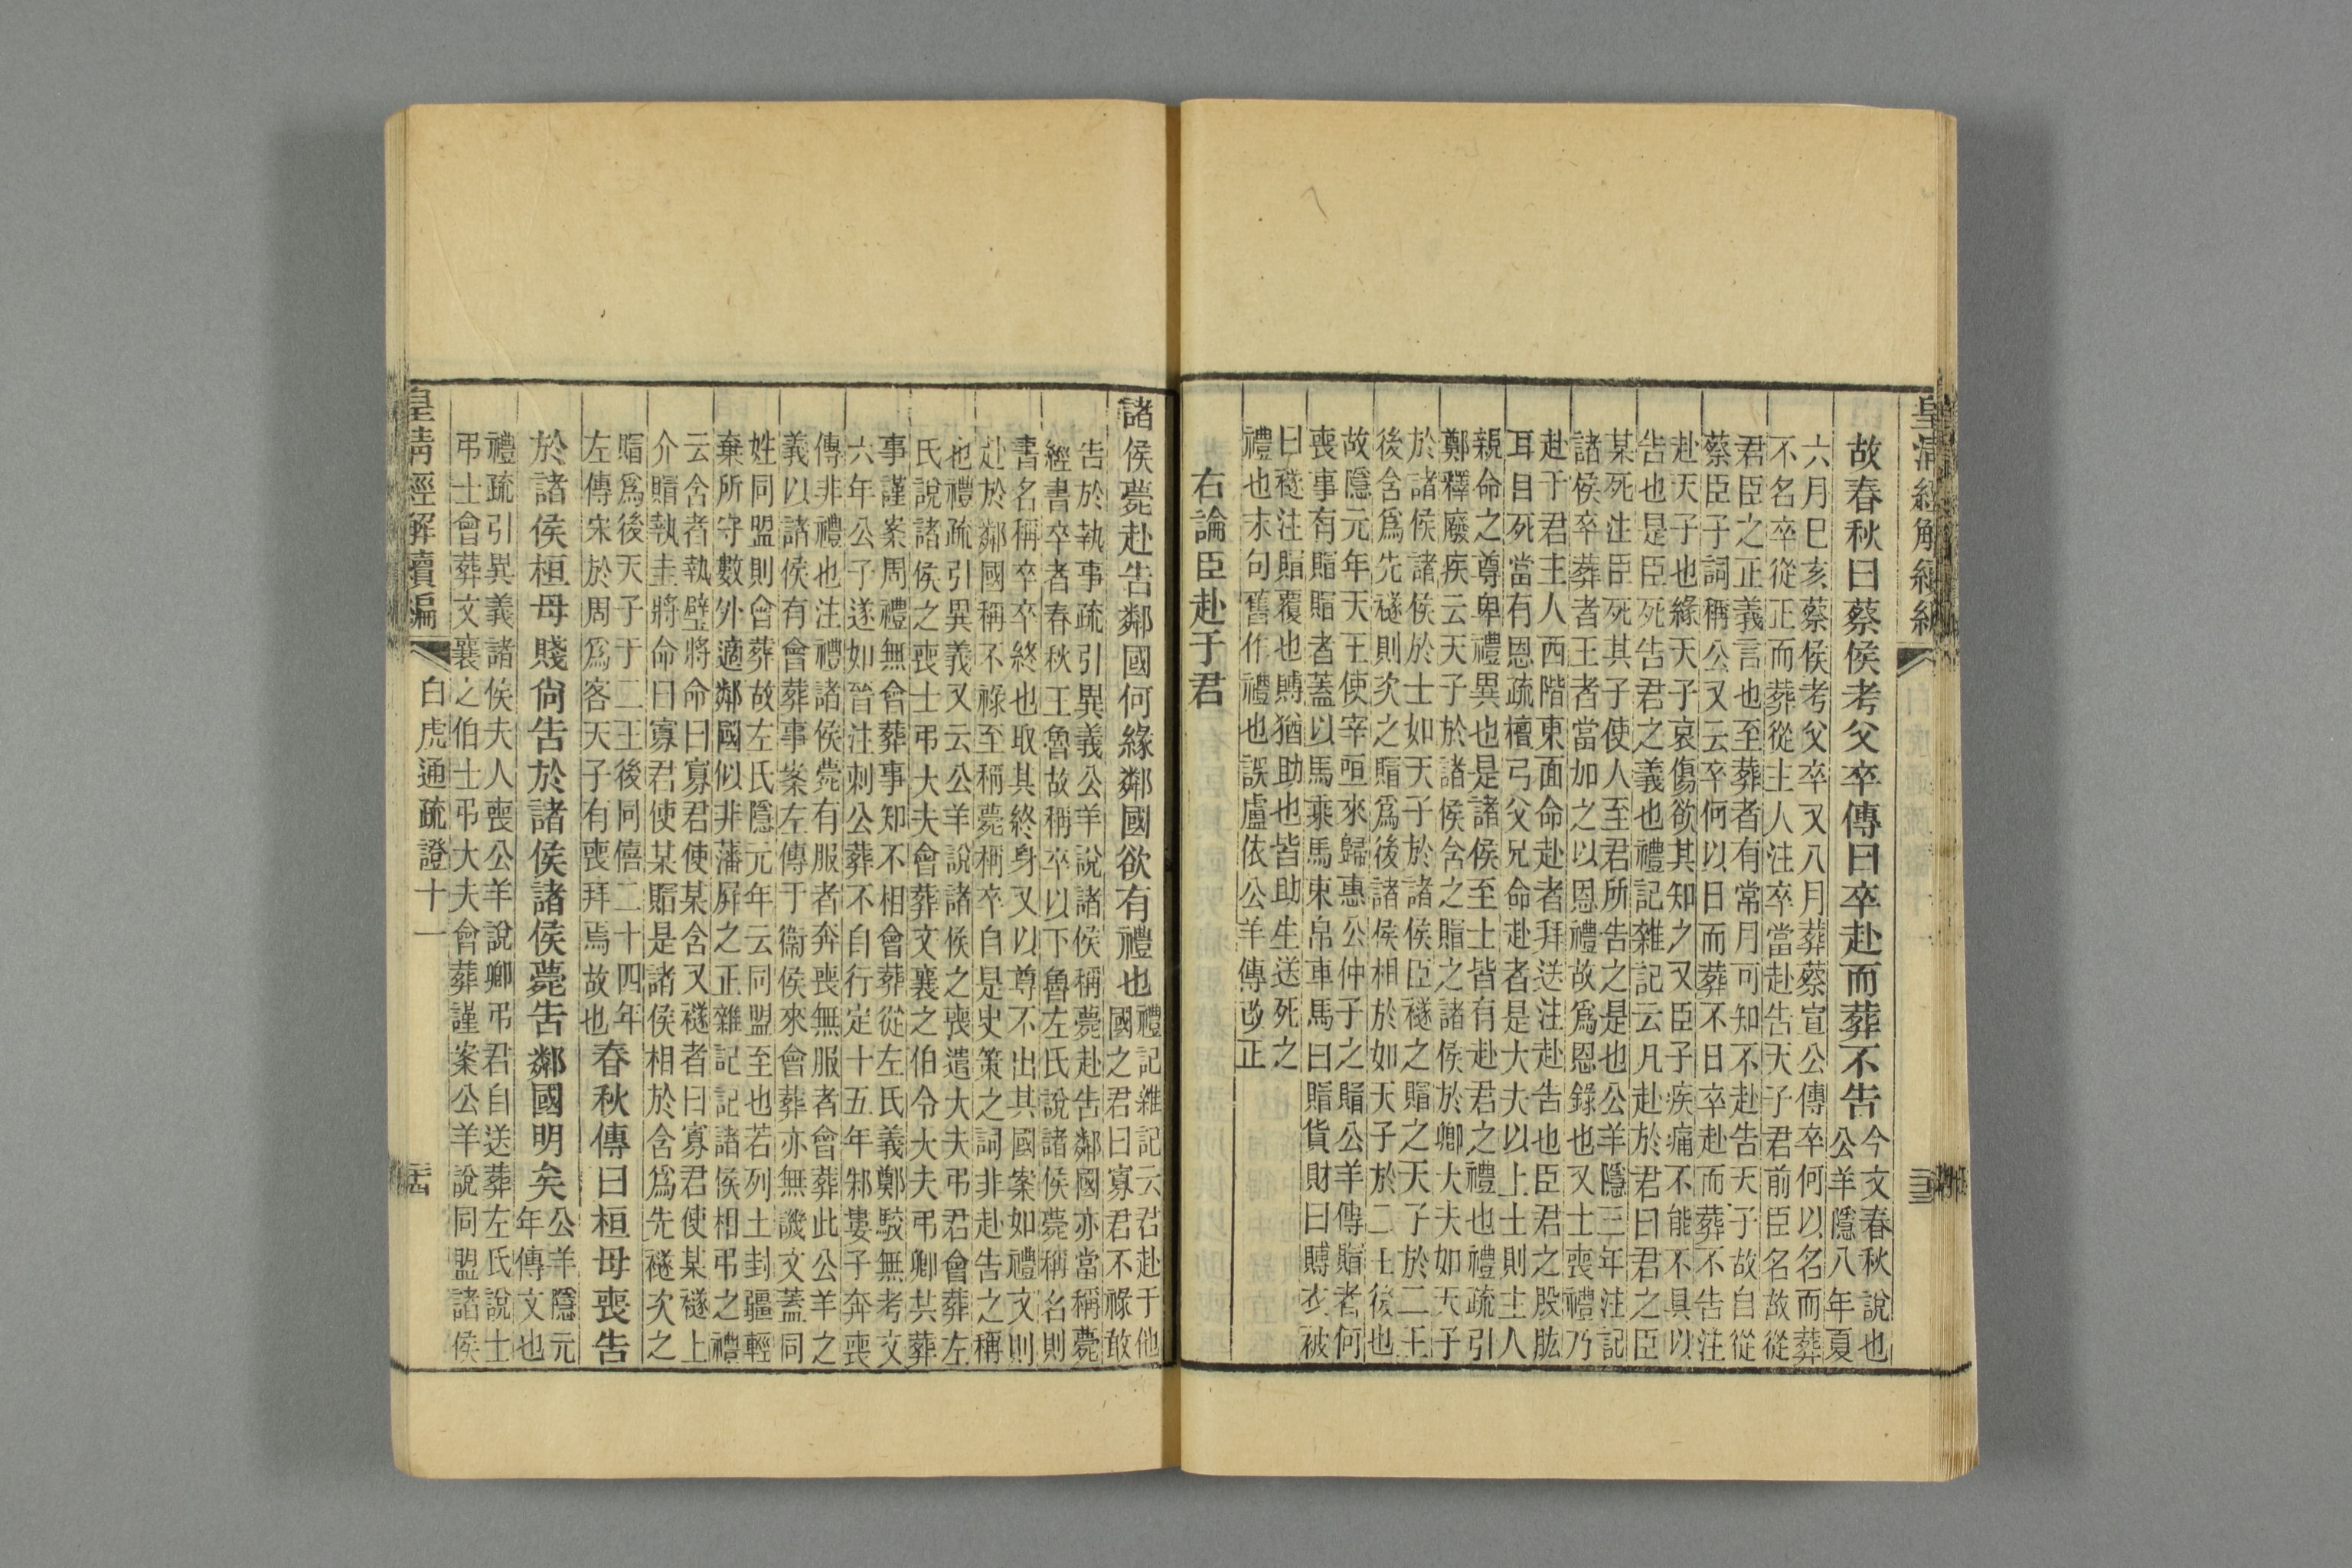 故春秋曰蔡侯考父卒傳曰卒赴而葬不告今文春秋說也
公羊隱八年夏
六月巳亥蔡侯考父卒又八月葬蔡宣公傳卒何以名而葬
不名卒從正而葬從主人注卒當赴告天子君前臣名故從
君臣之正義言也至葬者有常月可知不赴告天子故自從
蔡臣子詞稱公又云卒何以日而葬不日卒赴而葬不告注
赴天子也緣天子哀傷欲其知之又臣子疾痛不能不具以
告也是臣死告君之義也禮記雜記云凡赴於君曰君之臣
某死注臣死其子使人至君所告之是也公羊隱三年注記
諸侯卒葬者王者當加之以恩禮故爲恩錄也又士喪禮乃
赴于君主人西階東面命赴者拜送注赴告也臣君之股肱
耳目死當有恩疏檀弓父兄命赴者是大夫以上士則主人
親命之尊卑禮異也是諸侯至士皆有赴君之禮也禮疏引
鄭釋廢疾云天子於諸侯含之賵之諸侯於卿大夫如天子
於諸侯諸侯於士如天子於諸侯臣襚之賵之天子於二王
後含爲先襚則次之賵爲後諸侯相於如天子於二王後也
故隱元年天王使宰咺來歸惠公仲子之賵公羊傳賵者何
喪事有賵賵者蓋以馬乘馬束帛車馬曰賵貨財曰賻衣被
曰襚注賵覆也賻猶助也皆助生送死之
禮也末句舊作禮也誤盧依公羊傳改正
右論臣赴于君
諸侯薨赴告鄰國何緣鄰國欲有禮也禮記雜記云君赴于他
國之君曰寡君不祿敢
告於執事疏引異義公羊說諸侯稱薨赴告鄰國亦當稱薨
經書卒者春秋王魯故稱卒以下魯左氏說諸侯薨稱名則
書名稱卒卒終也取其終身又以尊不出其國案如禮文則
赴於鄰國稱不祿至稱薨稱卒自是史策之詞非赴告之稱
也禮疏引異義又云公羊說諸侯之喪遣大夫弔君會葬左
氏說諸侯之喪士弔大夫會葬文襄之伯令大夫弔卿共葬
事謹案周禮無會葬事知不相會葬從左氏義鄭駮無考文
六年公子遂如晉注刺公葬不自行定十五年邾婁子奔喪
傳非禮也注禮諸侯薨有服者奔喪無服者會葬此公羊之
義以諸侯有會葬事案左傳于衞侯來會葬亦無譏文蓋同
姓同盟則會葬故左氏隱元年云同盟至也若列土封疆輕
棄所守數外適鄰國似非藩屛之正雜記記諸侯相弔之禮
云含者執璧將命曰寡君使某含又襚者曰寡君使某襚上
介賵執圭將命曰寡君使某賵是諸侯相於含爲先襚次之
賵爲後天子于二王後同僖二十四年
左傳宋於周爲客天子有喪拜焉故也春秋傳曰桓母喪告
於諸侯桓母賤尙告於諸侯諸侯薨告鄰國明矣公羊隱元
年傳文也
禮疏引異義諸侯夫人喪公羊說卿弔君自送葬左氏說士
弔士會葬文襄之伯士弔大夫會葬謹案公羊說同盟諸侯
皇清經解續編
白虎通疏證十一